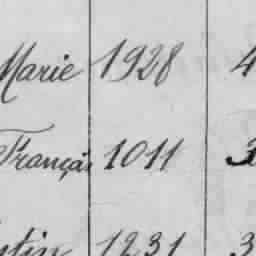 Marie 1928 4
Françai 1011 3
ntin 1231 3